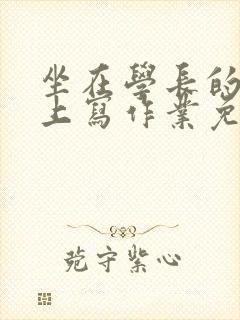 坐在學長的
上寫作業免
菀守紫心